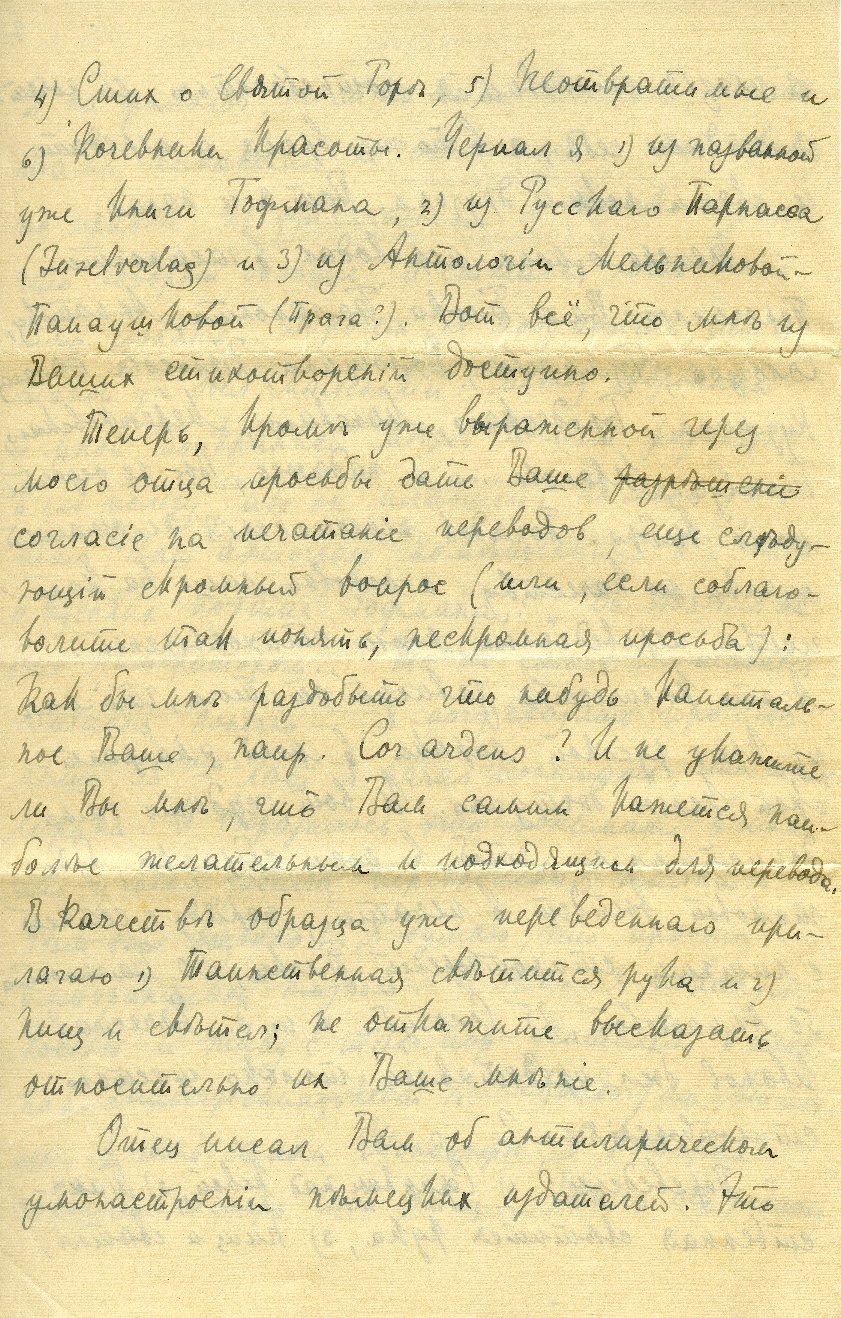 4) Стих о Святой Горѣ, 5) Неотвратимые и
6) Кочевники Красоты. Черпал я 1) из названной
уже книги Гофмана, 2) из Русскаго Парнасса
(Inselverlag) и 3) из Антологіи Мельниковой-
Папаушковой (Прага?). Вот всё, что мнѣ из
Ваших стихотвореній доступно.
Теперь, кромѣ уже выраженной через
моего отца просьбы дать Ваше разрѣшеніе
согласіе на печатаніе переводов, еще слѣду-
ющій скромный вопрос (или, если соблаго-
волите так понять, нескромная просьба):
Как бы мнѣ раздобыть что нибудь капиталь-
ное Ваше, напр. Cor ardens? И не укажите
ли Вы мнѣ, что Вам самим кажется наи-
болѣе желательным и подходящим для перевода.
В качествѣ образца уже переведеннаго при-
лагаю 1) Таинственная свѣтится рука и 2)
Нищ и свѣтел; не откажите высказать
относительно их Ваше мнѣніе.
Отец писал Вам об антилирическом
умонастроеніи нѣмецких издателей. Это